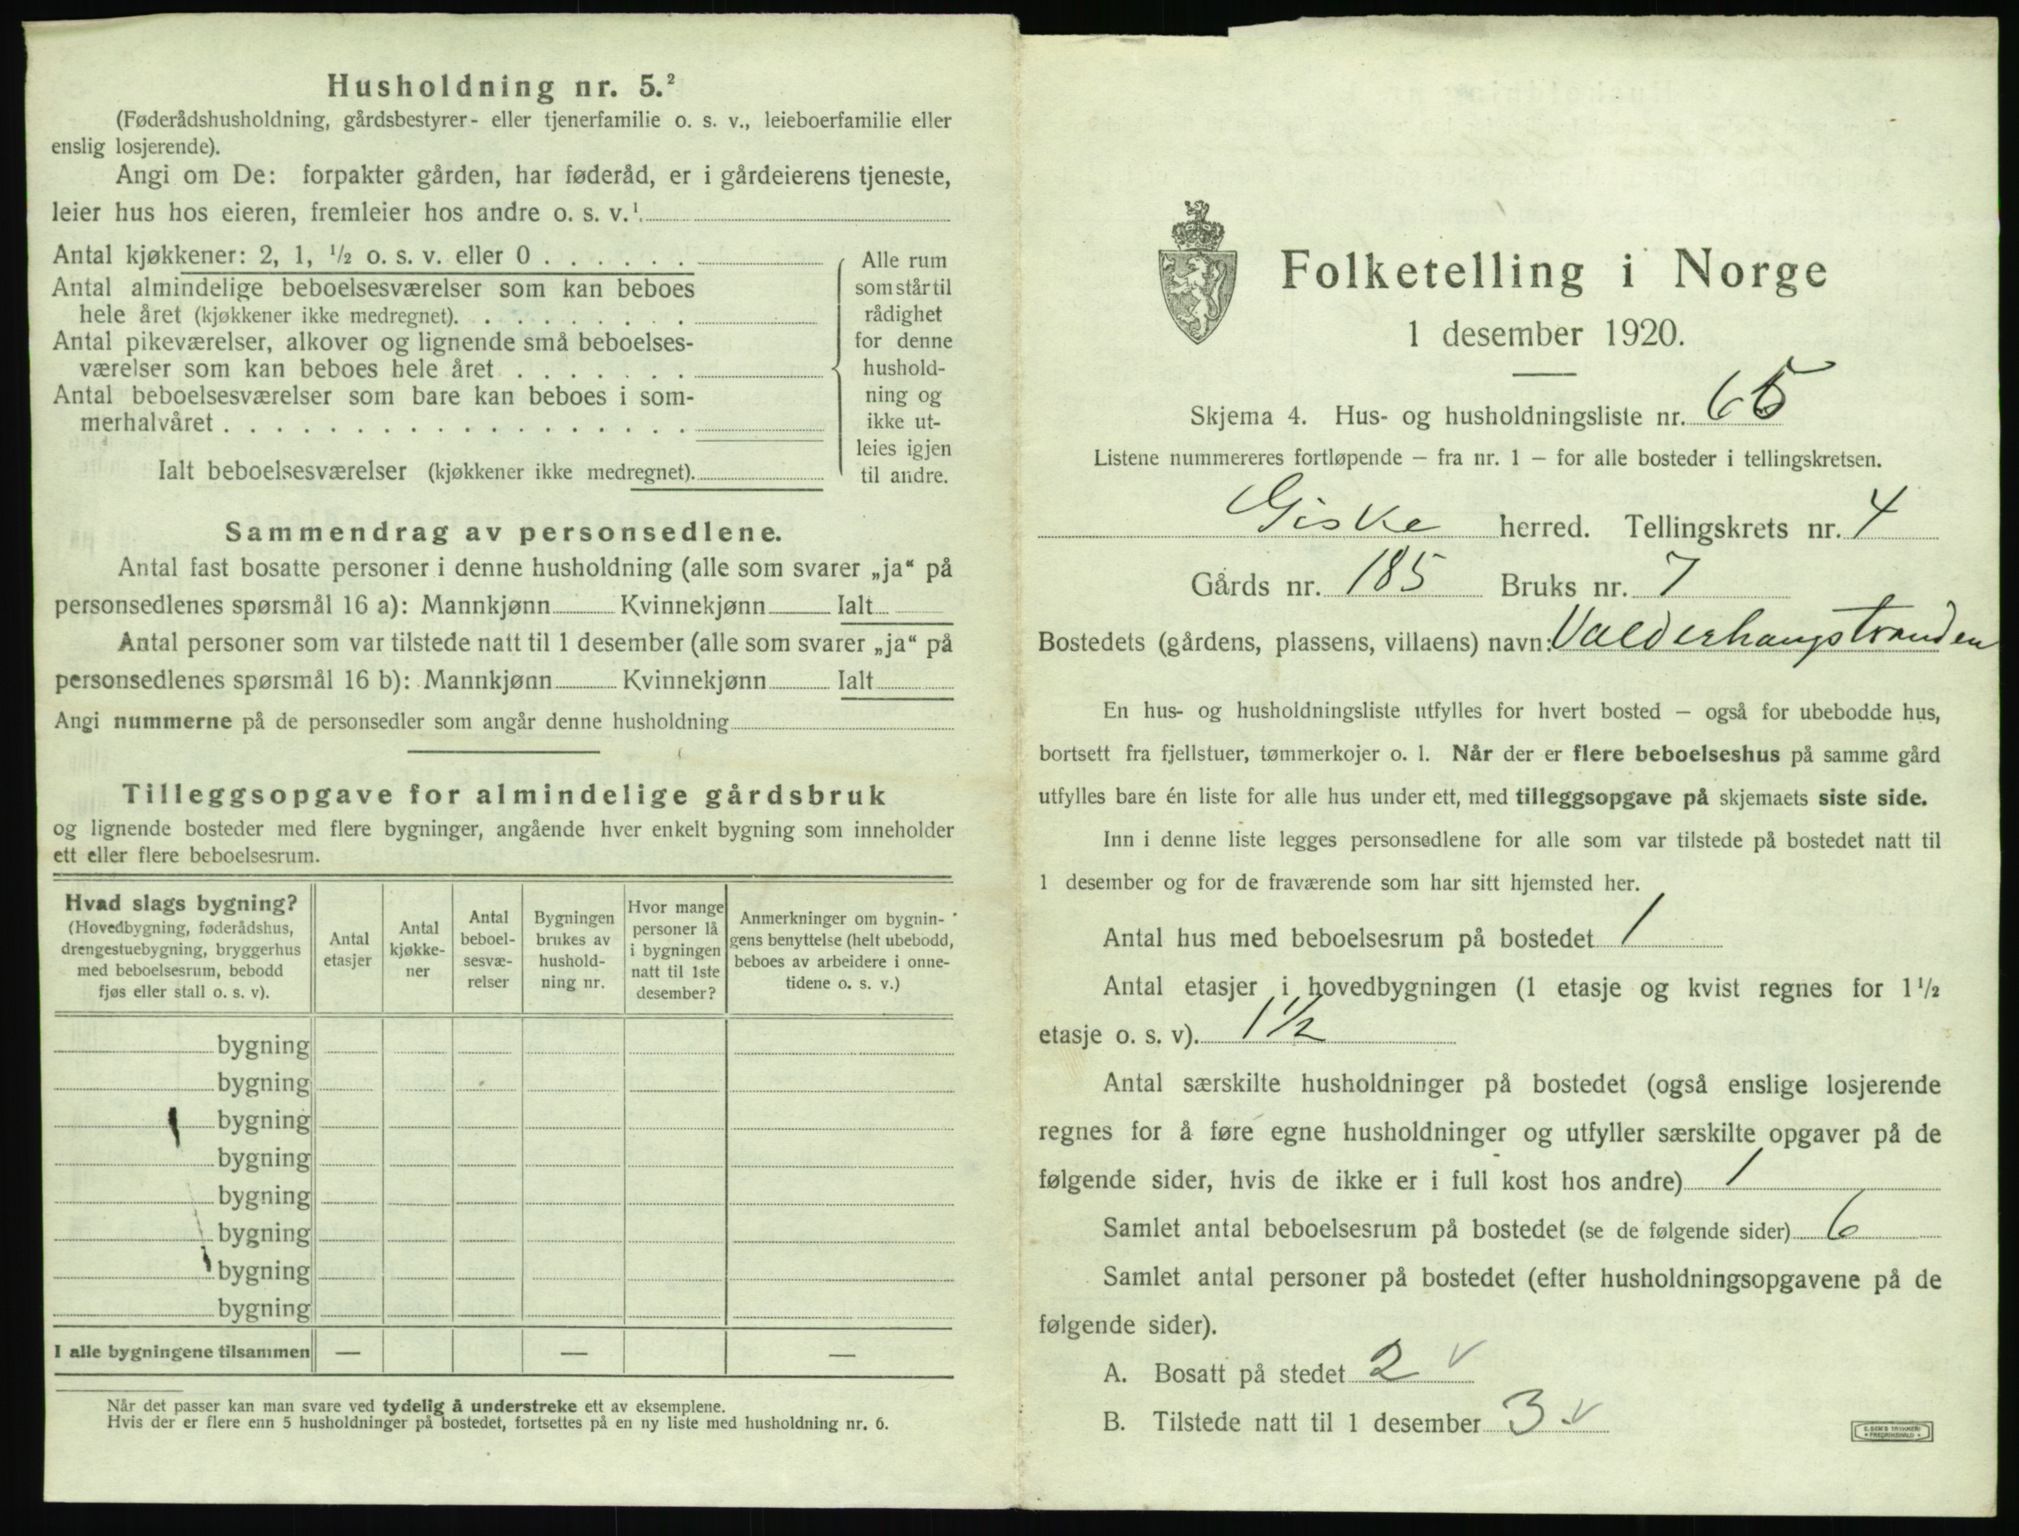 Husholdning nr. 5.²
(Føderådshusholdning, gårdsbestyrer- eller tjenerfamilie o. s. v., leieboerfamilie eller
enslig losjerende).
Angi om De: forpakter gården, har føderåd, er i gårdeierens tjeneste,
leier hus hos eieren, fremleier hos andre o. s. v.¹
Antal kjøkkener: 2, 1, ½ o. s. v. eller 0 . . . . . .
Antal almindelige beboelsesværelser som kan beboes
hele året (kjøkkener ikke medregnet). . . . . . . . .
Antal pikeværelser, alkover og lignende små beboelses-
værelser som kan beboes hele året . . . . . . .
Antal beboelsesværelser som bare kan beboes i som-
merhalvåret . . . . . . . . . . . . . . . . . .
Ialt beboelsesværelser (kjøkkener ikke medregnet).
Alle rum
som står til
rådighet
for denne
hushold-
ning og
ikke ut-
leies igjen
til andre.
Sammendrag av personsedlene.
Antal fast bosatte personer i denne husholdning (alle som svarer „ja“ på
personsedlenes spørsmål 16 a): Mannkjønn Kvinnekjønn Ialt
Antal personer som var tilstede natt til 1 desember (alle som svarer „ja“ på
personsedlenes spørsmål 16 b): Mannkjønn Kvinnekjønn Ialt
Angi nummerne på de personsedler som angår denne husholdning
Tilleggsopgave for almindelige gårdsbruk
og lignende bosteder med flere bygninger, angående hver enkelt bygning som inneholder
ett eller flere beboelsesrum.
Hvad slags bygning?
(Hovedbygning, føderådshus,
drengestuebygning, bryggerhus
med beboelsesrum, bebodd
fjøs eller stall o. s. v).
Antal
etasjer
Antal
kjøkke-
ner
Antal
beboel-
sesvæ-
relser
Bygningen
brukes av
hushold-
ning nr.
Hvor mange
personer lå
i bygningen
natt til 1ste
desember?
Anmerkninger om bygnin-
gens benyttelse (helt ubebodd,
beboes av arbeidere i onne-
tidene o. s. v.)
bygning
bygning
bygning
bygning
bygning
bygning
bygning
bygning
I alle bygningene tilsammen — — —
Når det passer kan man svare ved tydelig å understreke ett av eksemplene.
Hvis der er flere enn 5 husholdninger på bostedet, fortsettes på en ny liste med husholdning nr. 6.
Folketelling i Norge
1 desember 1920.
Skjema 4. Hus- og husholdningsliste nr. 65
Listene nummereres fortløpende – fra nr. 1 – for alle bosteder i tellingskretsen.
Giske herred. Tellingskrets nr. 4
Gårds nr. 185 Bruks nr. 7
Bostedets (gårdens, plassens, villaens) navn: Valderhaugstranden
En hus- og husholdningsliste utfylles for hvert bosted – også for ubebodde hus,
bortsett fra fjellstuer, tømmerkojer o. l. Når der er flere beboelseshus på samme gård
utfylles bare én liste for alle hus under ett, med tilleggsopgave på skjemaets siste side.
Inn i denne liste legges personsedlene for alle som var tilstede på bostedet natt til
1 desember og for de fraværende som har sitt hjemsted her.
Antal hus med beboelsesrum på bostedet 1
Antal etasjer i hovedbygningen (1 etasje og kvist regnes for 1 ½
etasje o. s. v). 1 ½
Antal særskilte husholdninger på bostedet (også enslige losjerende
regnes for å føre egne husholdninger og utfyller særskilte opgaver på de
følgende sider, hvis de ikke er i full kost hos andre) 1
Samlet antal beboelsesrum på bostedet (se de følgende sider) 6
Samlet antal personer på bostedet (efter husholdningsopgavene på de
følgende sider).
A. Bosatt på stedet 2 v
B. Tilstede natt til 1 desember 3 v